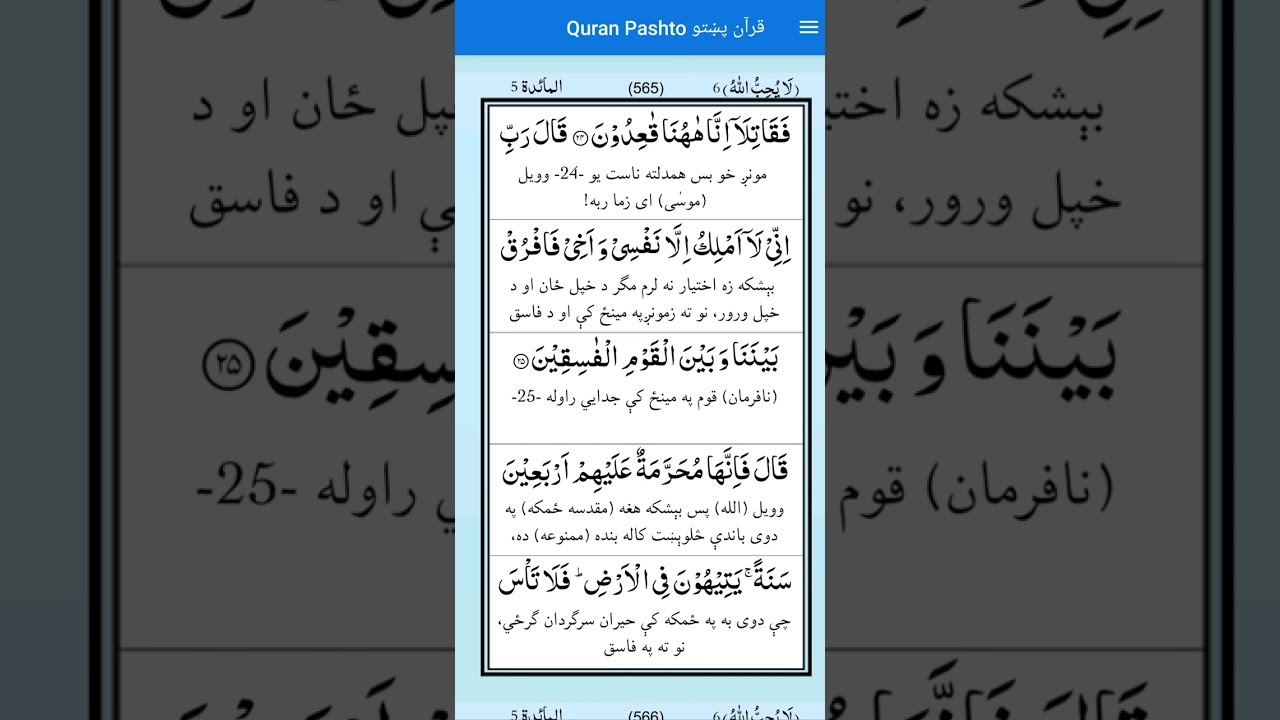 Quran Pashto قرآن پښتو
(لَا يُحِبُّ اللهُ) 6 (565) المآئدة 5
فَقَاتِلَآ اِنَّا هٰهُنَا قٰعِدُوْنَ ﴿۲۴﴾ قَالَ رَبِّ
مونږ خو بس همدلته ناست یو -24- وویل
(موسٰی) ای زما ربه!
اِنِّیْ لَآ اَمْلِكُ اِلَّا نَفْسِیْ وَ اَخِیْ فَافْرُقْ
بېشکه زه اختیار نه لرم مگر د خپل ځان او د
خپل ورور، نو ته زمونږپه مینځ کې او د فاسق
بَیْنَنَا وَ بَیْنَ الْقَوْمِ الْفٰسِقِیْنَ ﴿۲۵﴾
(نافرمان) قوم په مینځ کې جدایي راوله -25-
قَالَ فَاِنَّهَا مُحَرَّمَةٌ عَلَیْهِمْ اَرْبَعِیْنَ
وویل (الله) پس بېشکه هغه (مقدسه ځمکه) په
دوی باندې څلوېښت کاله بنده (ممنوعه) ده،
سَنَةً ۚ یَتِیْهُوْنَ فِی الْاَرْضِ ؕ فَلَا تَاْسَ
چې دوی به په ځمکه کې حیران سرگردان گرځي،
نو ته په فاسق
(لَا يُحِبُّ اللهُ) 6 (566) المآئدة 5